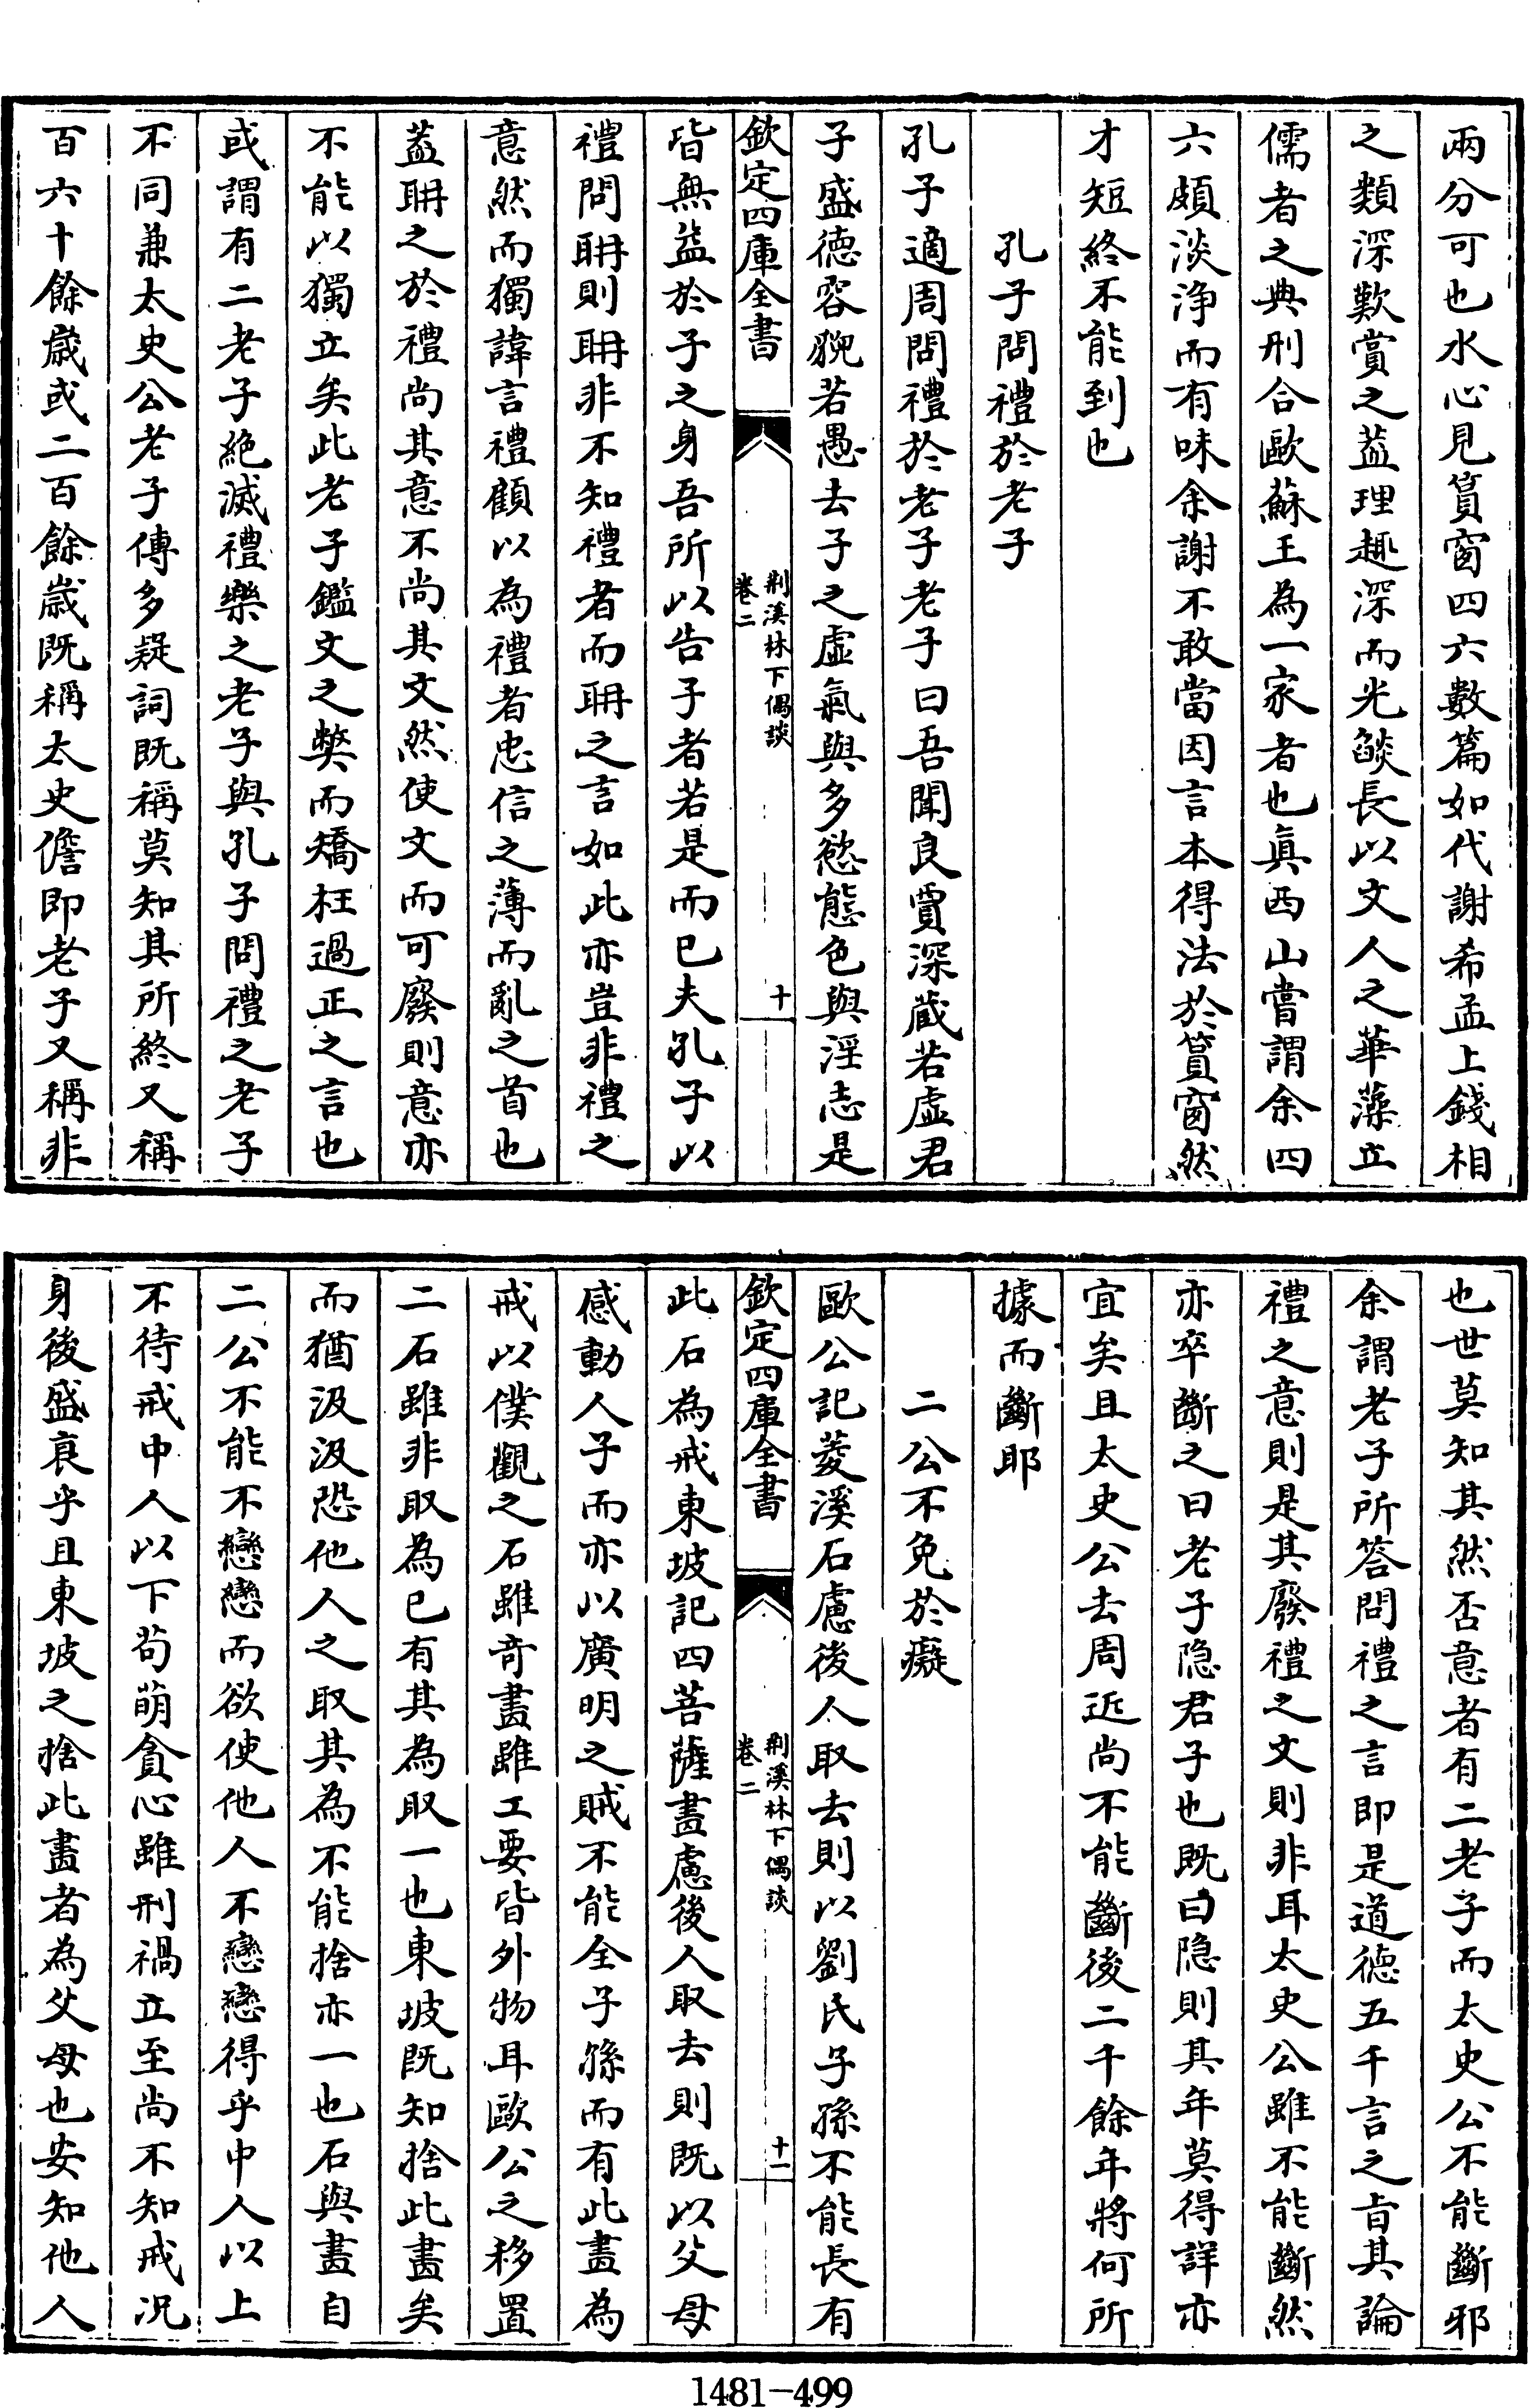 兩分可也水心見篔窗四六數篇如代謝希孟上錢相
之類深歎賞之葢理趣深而光燄長以文人之華藻立
儒者之典刑合歐蘇王為一家者也真西山嘗謂余四
六頗淡浄而有味余謝不敢當因言本得法於篔窗然
才短終不能到也
孔子問禮於老子
孔子適周問禮於老子老子曰吾聞良賈深蔵若虛君
子盛德容貌若愚去子之虛氣與多慾態色與淫志是
欽定四庫全書
荆溪林下偶談
卷二
十
皆無益於子之身吾所以告子者若是而已夫孔子以
禮問耼則耼非不知禮者而耼之言如此亦豈非禮之
意然而獨諱言禮顧以為禮者忠信之薄而亂之首也
葢耼之於禮尚其意不尚其文然使文而可廢則意亦
不能以獨立矣此老子鑑文之弊而矯枉過正之言也
或謂有二老子絶滅禮樂之老子與孔子問禮之老子
不同兼太史公老子傳多疑詞既稱莫知其所終又稱
百六十餘嵗或二百餘嵗既稱太史儋即老子又稱非
也世莫知其然否意者有二老子而太史公不能斷邪
余謂老子所答問禮之言即是道德五千言之旨其論
禮之意則是其廢禮之文則非耳太史公雖不能斷然
亦卒斷之曰老子隐君子也既曰隐則其年莫得詳亦
宜矣且太史公去周近尚不能斷後二千餘年將何所
據而斷耶
二公不免於癡
歐公記菱溪石慮後人取去則以劉氏子孫不能長有
欽定四庫全書
荆溪林下偶談
卷二
十一
此石為戒東坡記四菩薩畫慮後人取去則既以父母
感動人子而亦以廣明之賊不能全子孫而有此畫為
戒以僕觀之石雖奇畫雖工要皆外物耳歐公之移置
二石雖非取為已有其為取一也東坡既知捨此畫矣
而猶汲汲恐他人之取其為不能捨亦一也石與畫自
二公不能不戀戀而欲使他人不戀戀得乎中人以上
不待戒中人以下茍萌貪心雖刑禍立至尚不知戒况
身後盛衰乎且東坡之捨此畫者為父母也安知他人
1481-499